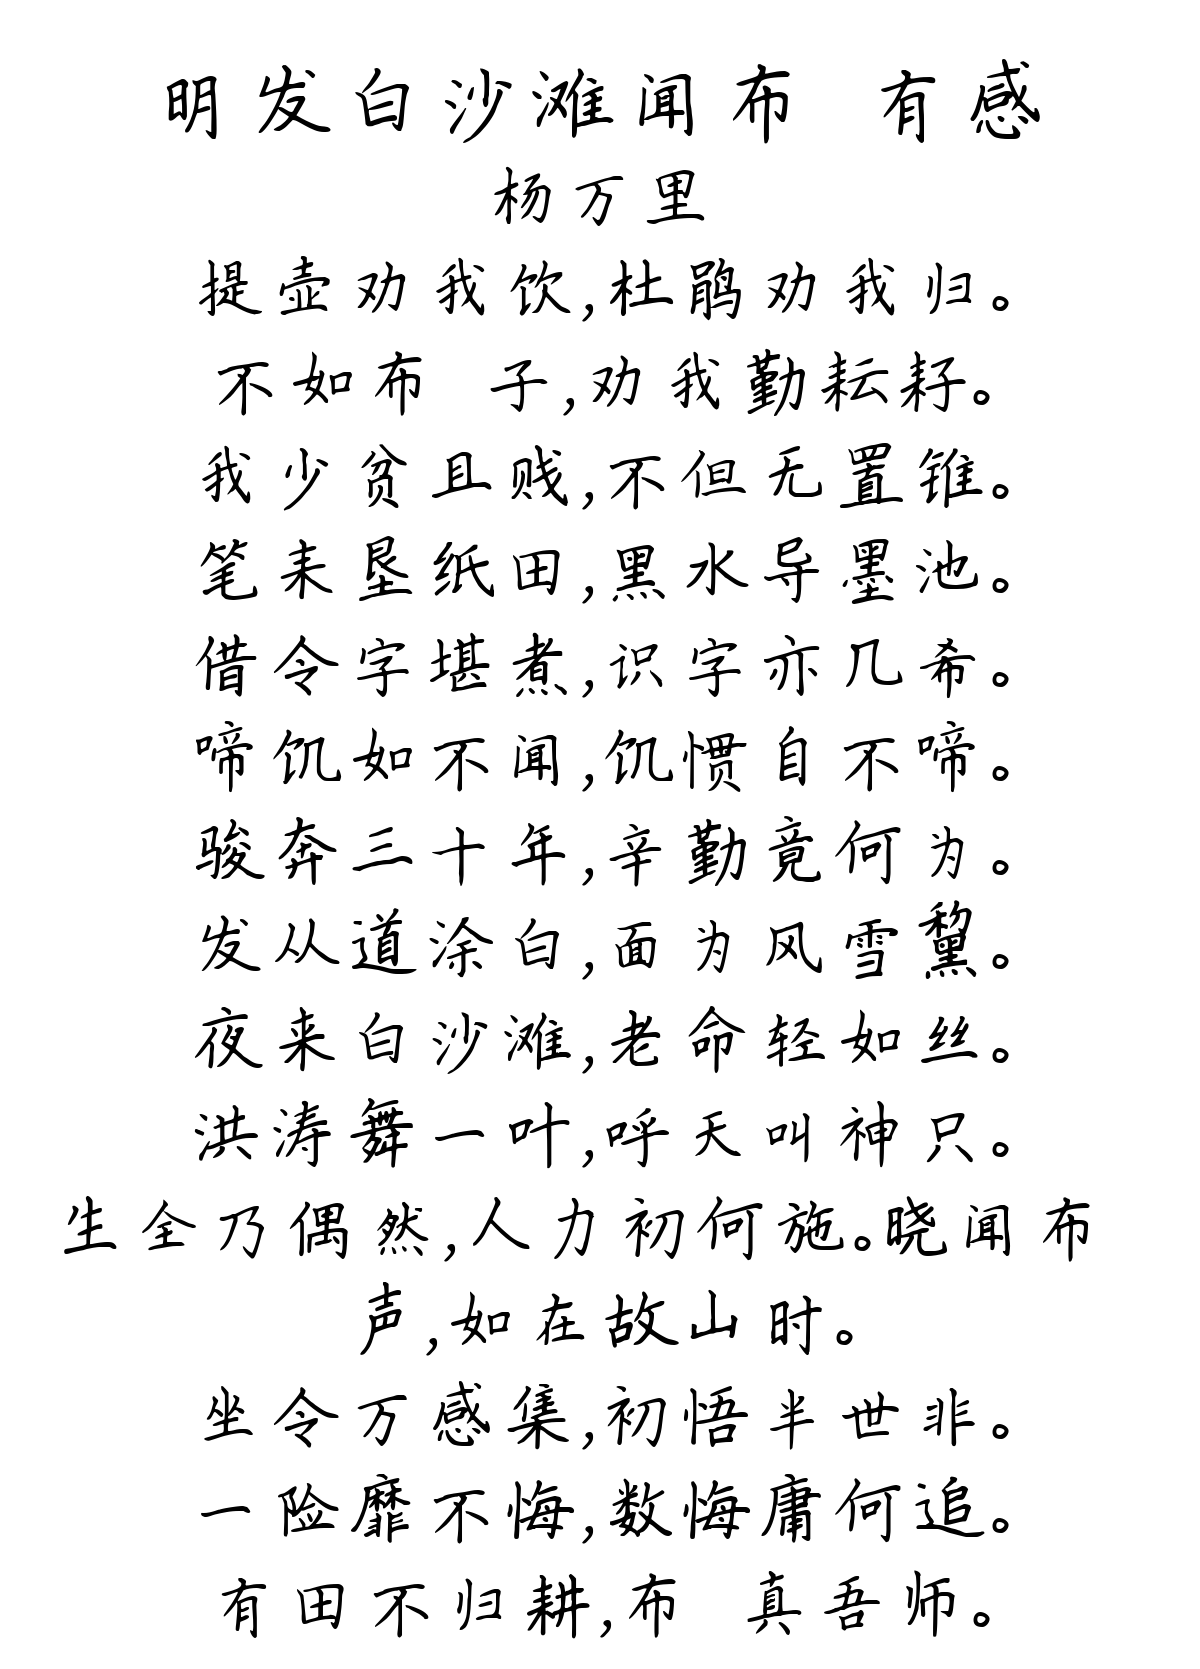 明发白沙滩闻布 有感
杨万里
提壶劝我饮,杜鹃劝我归。
不如布 子,劝我勤耘耔。
我少贫且贱,不但无置锥。
笔耒垦纸田,黑水导墨池。
借令字堪煮,识字亦几希。
啼饥如不闻,饥惯自不啼。
骏奔三十年,辛勤竟何为。
发从道涂白,面为风雪黧。
夜来白沙滩,老命轻如丝。
洪涛舞一叶,呼天叫神只。
生全乃偶然,人力初何施。晓闻布
声,如在故山时。
坐令万感集,初悟半世非。
一险靡不悔,数悔庸何追。
有田不归耕,布 真吾师。